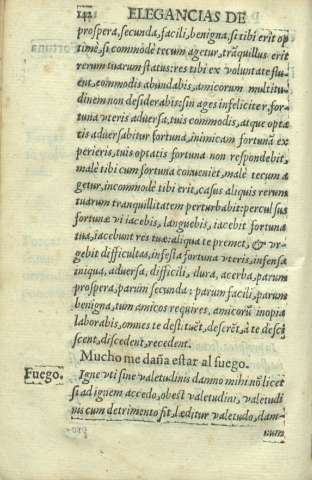 142 ELEGANCIAS DE
prospera, secunda, facili, benigna, si tibi erit op
time, si commodè tecum agetur, trãquillus erit
rerum tuarum status: res tibi ex voluntate flu
ent, commodis abundabis, amicorum multitu
dinem non desiderabis: sin ages infeliciter, for-
tuna vteris aduersa, tuis commodis, atque optat
tis aduersabitur fortuna, inimicam fortunã ex
perieris, tuis optatis fortuna non respondebit,
malè tibi cum fortuna conueniet, malè tecum a
getur, incommodè tibi erit, casus aliquis rerum
tuarum tranquillitatem perturbabit: perculsus
fortunæ vi iacebis, languebis, tacebit fortuna
tua, iacebunt res tuæ: aliqua te premet, & vr-
gebit difficultas, infesta fortuna vteris, infensa
iniqua, aduersa, difficili, dura, acerba, parum
prospera, parum secunda: parum facili, parum
benigna, tum amicos requires, amicorũ inopia
laborabis, omnes te destituẽt, deserẽt, à te desci
scent, discedent, recedent.
Mucho me daña estar al fuego.
Fuego. Igne vti sine valetudinis damno mihi nõ licet
si ad ignem accedo, obest valetudini, valetudi
nis cum detrimento fit, læditur valetudo, dam-
num